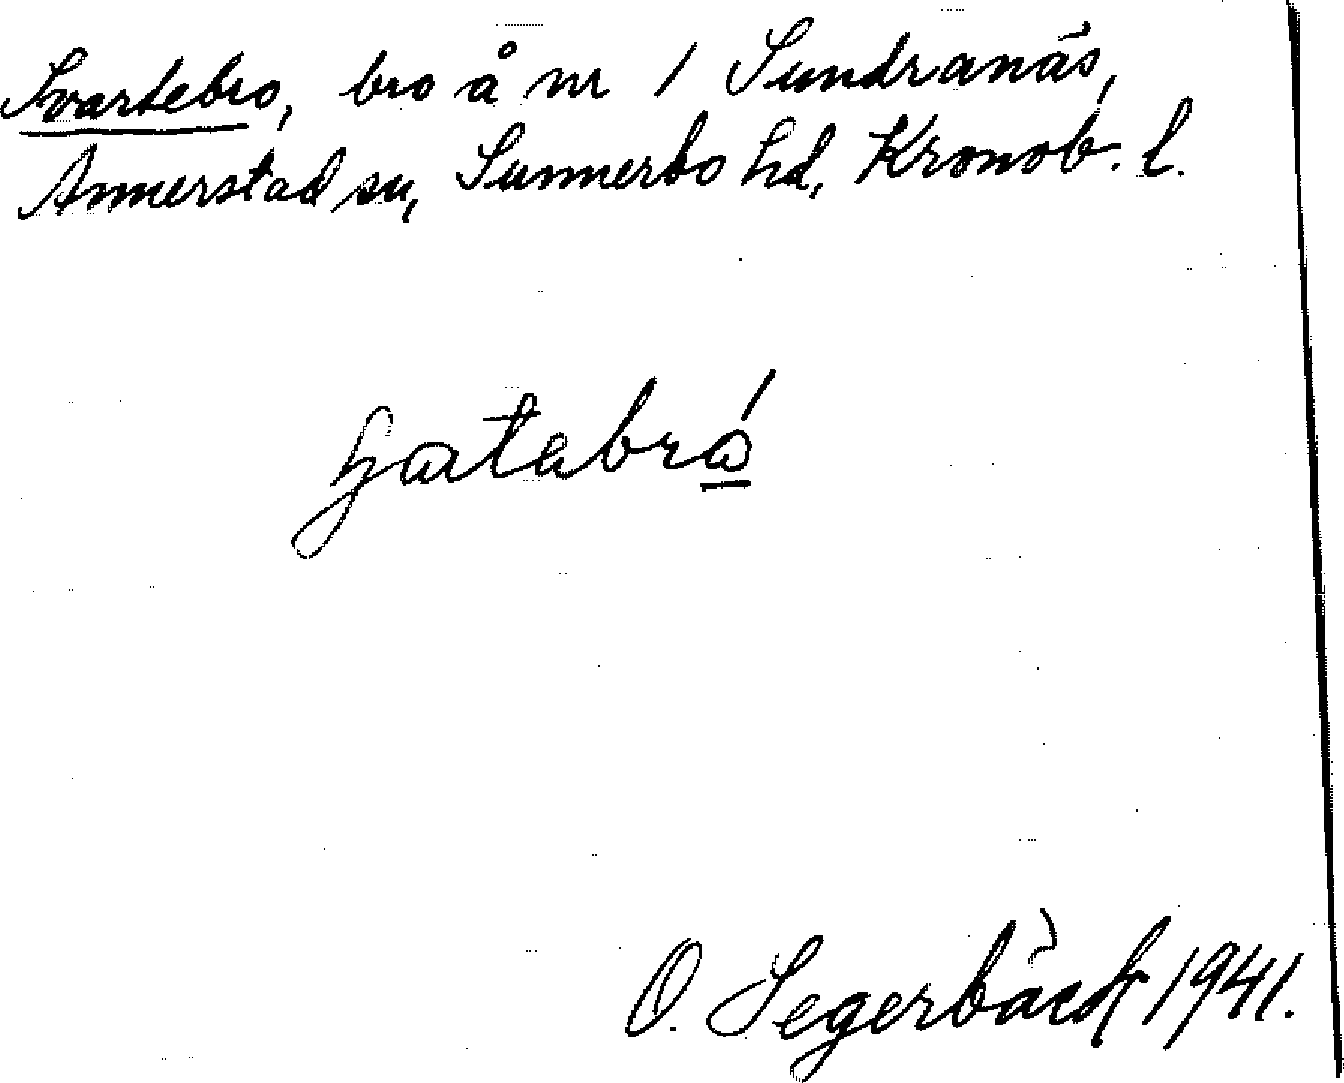 Svartebro, bro å nr 1 Sundranäs,
Annerstad sn, Sunnerbo hd, Kronob. l.
O. Segerbäck 1941.